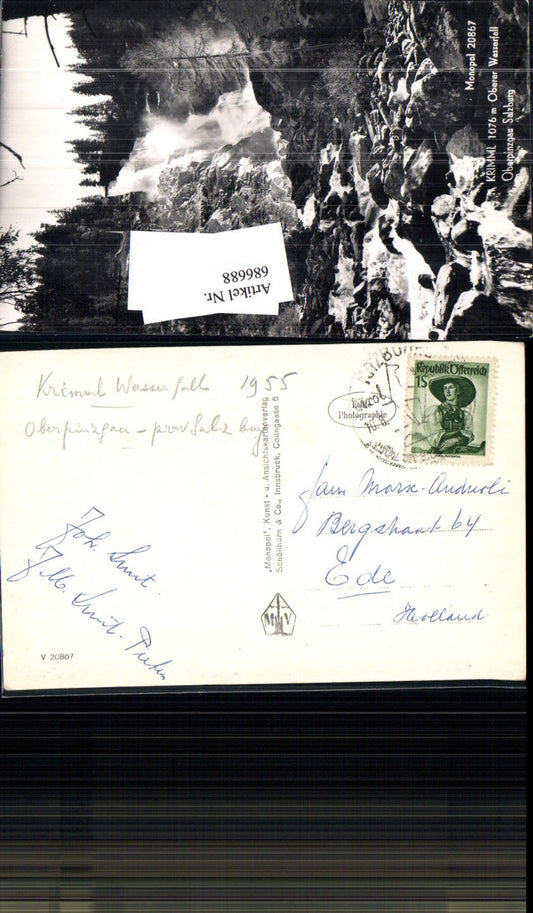 Monopol 20867
KRIMML 1076 m Oberer Wasserfall
Oberpinzgau Salzburg
Artikel Nr.
686688
Krimml Wasserfall 1955
Oberpinzgau - prov Salzburg
"Monopol", Kunst- u. Ansichtskartenverlag
Schöllhorn & Co., Innsbruck, Collingasse 6
Echte
Photographie
KITZBÜHEL
Republik Österreich
1S
Fam Marx-Andreoli
Bergstraat 64
Ede
Holland
Joh. Smit.
Smit-
M V
V 20867